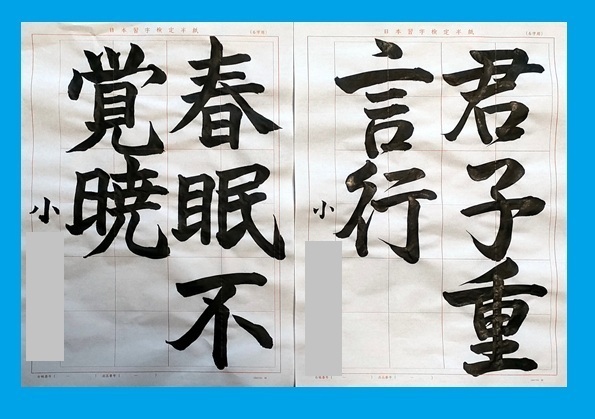 日本習字検定半紙
君子重
言行
小
日本習字検定半紙
春眠不
覚暁
小